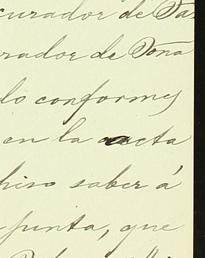 curador de Da
rador de Dona
do conformes
en la acta
hiso saber á
junta, que